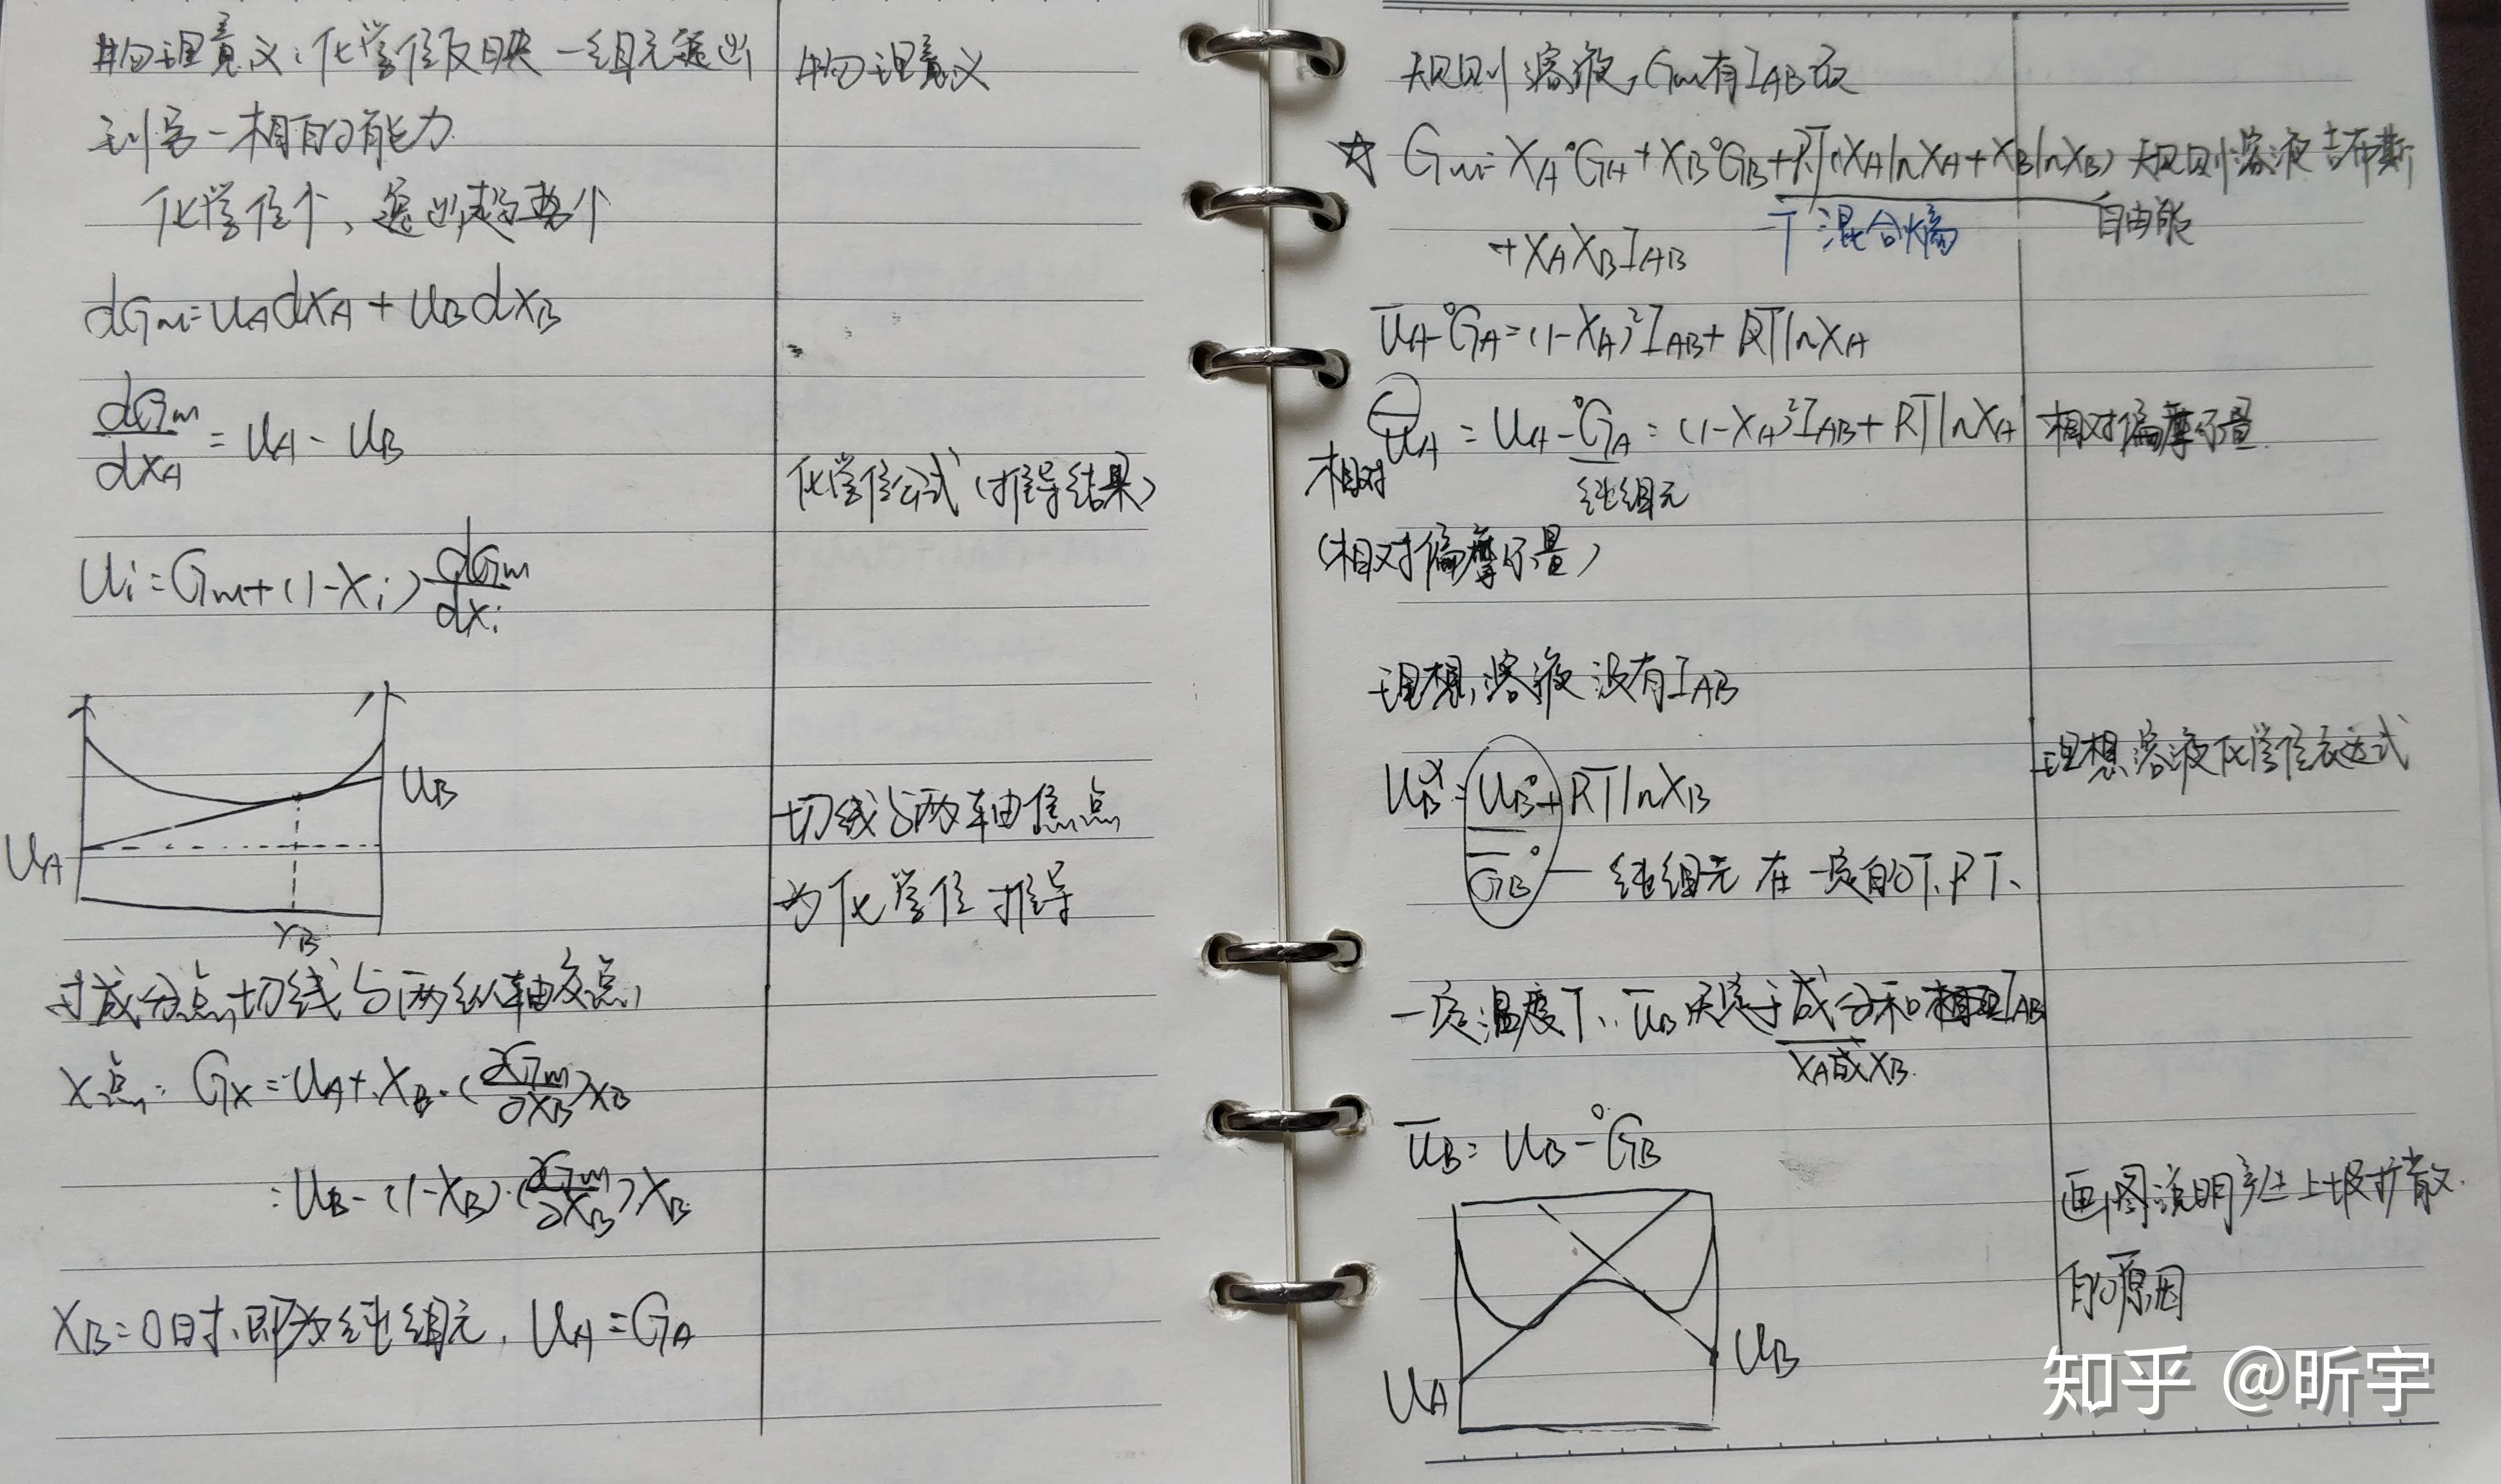 物理意义：化学位反映一组元逸出
到另一相的能力.
化学位个，逸出趋势个
dGm=UAdXA+UBdXB
dGm/dXA = UA - UB
Ui=Gm+(1-Xi) dGm/dXi
UB
UA
XB
过成分点,切线与两纵轴交点,
X点: GX=UA+XB·(∂Gm/∂XB)XB
=UB-(1-XB)·(∂Gm/∂XB)XB
XB=0时,即为纯组元, UA=GA
物理意义
化学位公式(推导结果)
切线与两轴焦点
为化学位 推导
规则溶液,Gm有IAB故
☆ Gm=XA°GA+XB°GB+RT(XAlnXA+XBlnXB)
+XAXBIAB
-T 混合熵
UA-°GA=(1-XA)²IAB+RTlnXA
UA = UA-°GA=(1-XA)²IAB+RTlnXA
相对
纯组元
(相对偏摩尔量)
理想溶液没有IAB
UBα=UB°+RTlnXB
GB° — 纯组元在一定的T,P下、
一定温度下,UB决定于成分和相互IAB
XA或XB.
UB=UB-°GB
UB
UA
规则溶液吉布斯
自由能
相对偏摩尔量.
理想溶液化学位表达式
画图说明产生上坡扩散
的原因
知乎 @昕宇